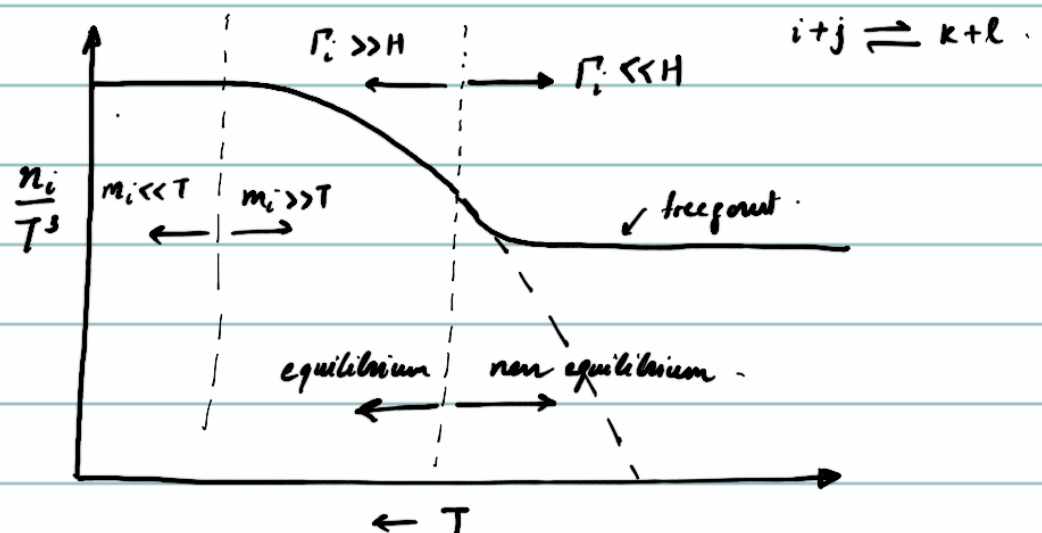 i+j ⇌ k+l .
Γᵢ >>H
Γᵢ <<H
nᵢ/T³
mᵢ<<T
mᵢ>>T
← →
↙ freezeout .
equilibrium
non equilibrium .
← T